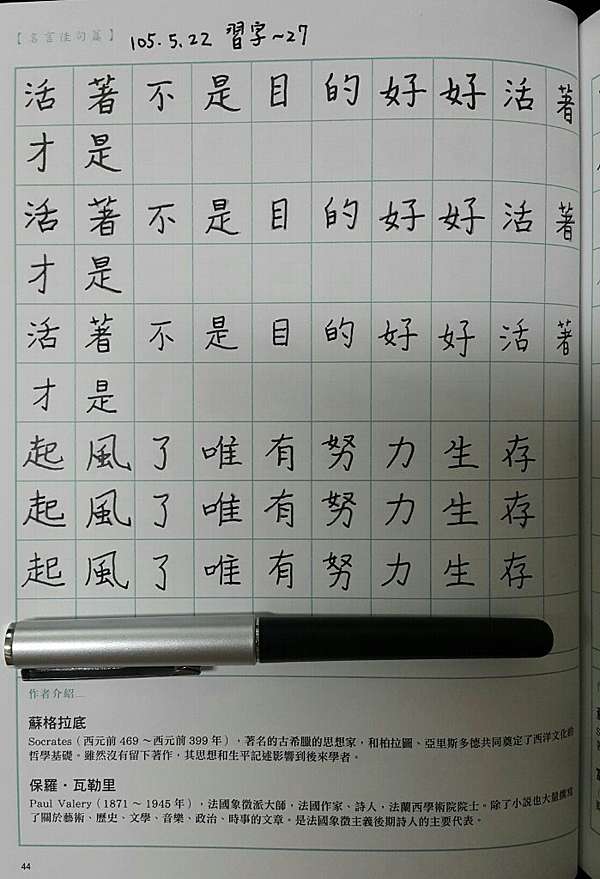 【名言佳句篇】 105.5.22 習字~27
活著不是目的好好活著
才是
活著不是目的好好活著
才是
活著不是目的好好活著
才是
起風了唯有努力生存
起風了唯有努力生存
起風了唯有努力生存
作者介紹
蘇格拉底
Socrates（西元前469～西元前399年），著名的古希臘的思想家，和柏拉圖、亞里斯多德共同奠定了西洋文化的
哲學基礎。雖然沒有留下著作，其思想和生平記述影響到後來學者。
保羅・瓦勒里
Paul Valery（1871～1945年），法國象徵派大師，法國作家、詩人，法蘭西學術院院士。除了小說也大量撰寫
了關於藝術、歷史、文學、音樂、政治、時事的文章。是法國象徵主義後期詩人的主要代表。
44